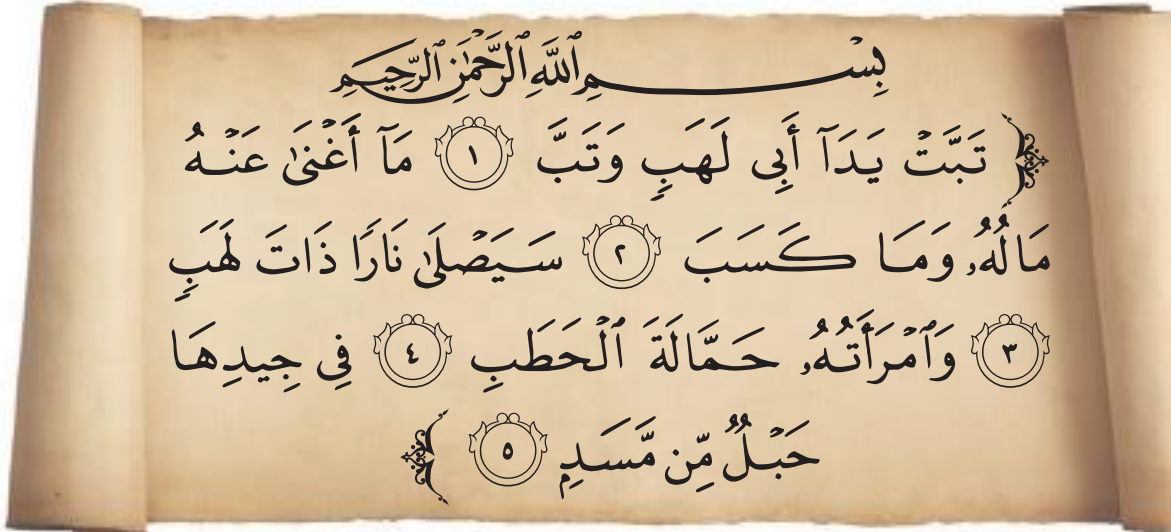 بِسْمِ ٱللَّهِ ٱلرَّحْمَٰنِ ٱلرَّحِيمِ
﴿ تَبَّتْ يَدَآ أَبِى لَهَبٍ وَتَبَّ ١ مَآ أَغْنَىٰ عَنْهُ
مَالُهُۥ وَمَا كَسَبَ ٢ سَيَصْلَىٰ نَارًا ذَاتَ لَهَبٍ
٣ وَٱمْرَأَتُهُۥ حَمَّالَةَ ٱلْحَطَبِ ٤ فِى جِيدِهَا
حَبْلٌ مِّن مَّسَدٍۭ ٥ ﴾